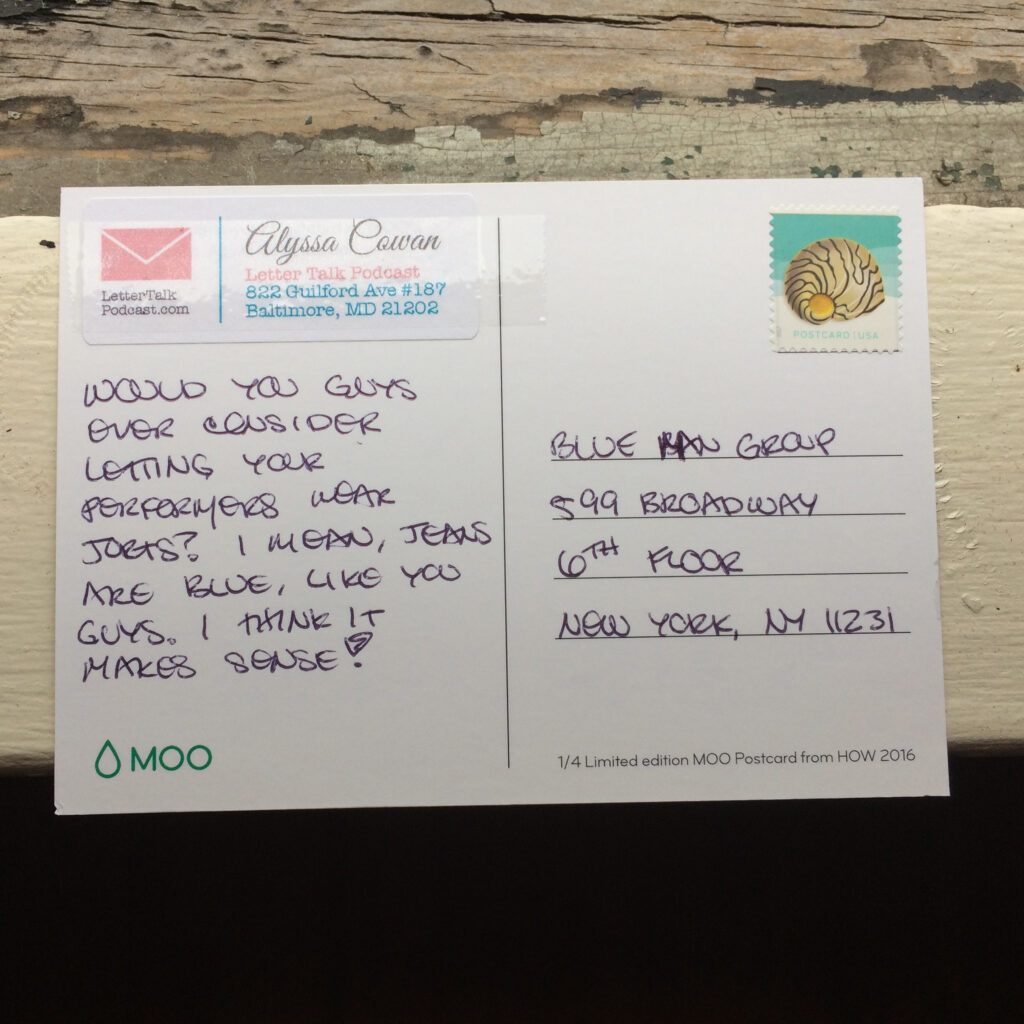 Alyssa Cowan
Letter Talk Podcast
822 Guilford Ave #187
Baltimore, MD 21202
LetterTalk
Podcast.com
POSTCARD | USA
WOULD YOU GUYS
EVER CONSIDER
LETTING YOUR
PERFORMERS WEAR
JORTS? I MEAN, JEANS
ARE BLUE, LIKE YOU
GUYS. I THINK IT
MAKES SENSE!
BLUE MAN GROUP
599 BROADWAY
6TH FLOOR
NEW YORK, NY 11231
MOO
1/4 Limited edition MOO Postcard from HOW 2016